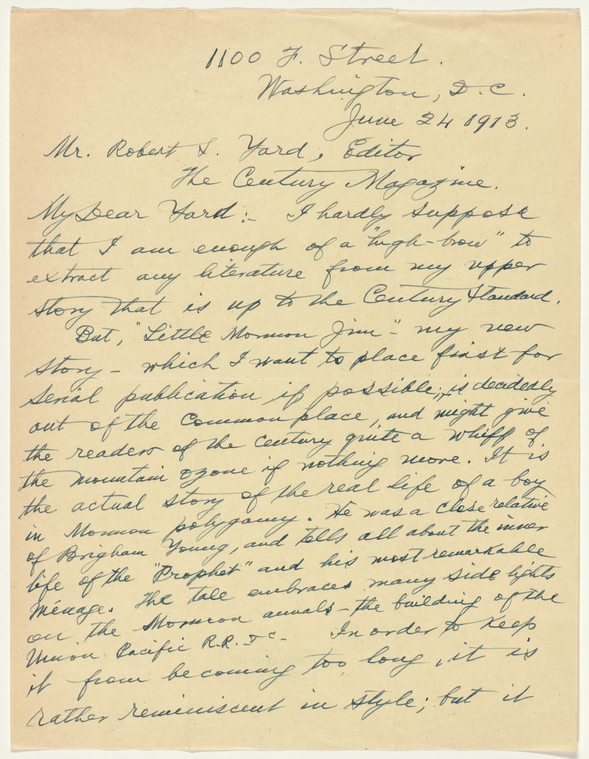 1100 F. Street.
Washington, D.C.
June 24 1913.
Mr. Robert S. Yard, Editor
The Century Magazine.
My Dear Yard:- I hardly suppose
that I am enough of a "high-brow" to
extract any literature from my upper
story that is up to the Century Standard.
But, "Little Mormon Jim" - my new
story - which I want to place first for
serial publication if possible, is decidedly
out of the common place, and might give
the readers of the Century quite a whiff of
the mountain ozone if nothing more. It is
the actual story of the real life of a boy
in Mormon polygamy. He was a close relative
of Brigham Young, and tells all about the inner
life of the "Prophet" and his most remarkable
menage. The tale embraces many side lights
on the Mormon annals - the building of the
Union Pacific R.R. &c - In order to keep
it from becoming too long, it is
rather reminiscent in style; but it